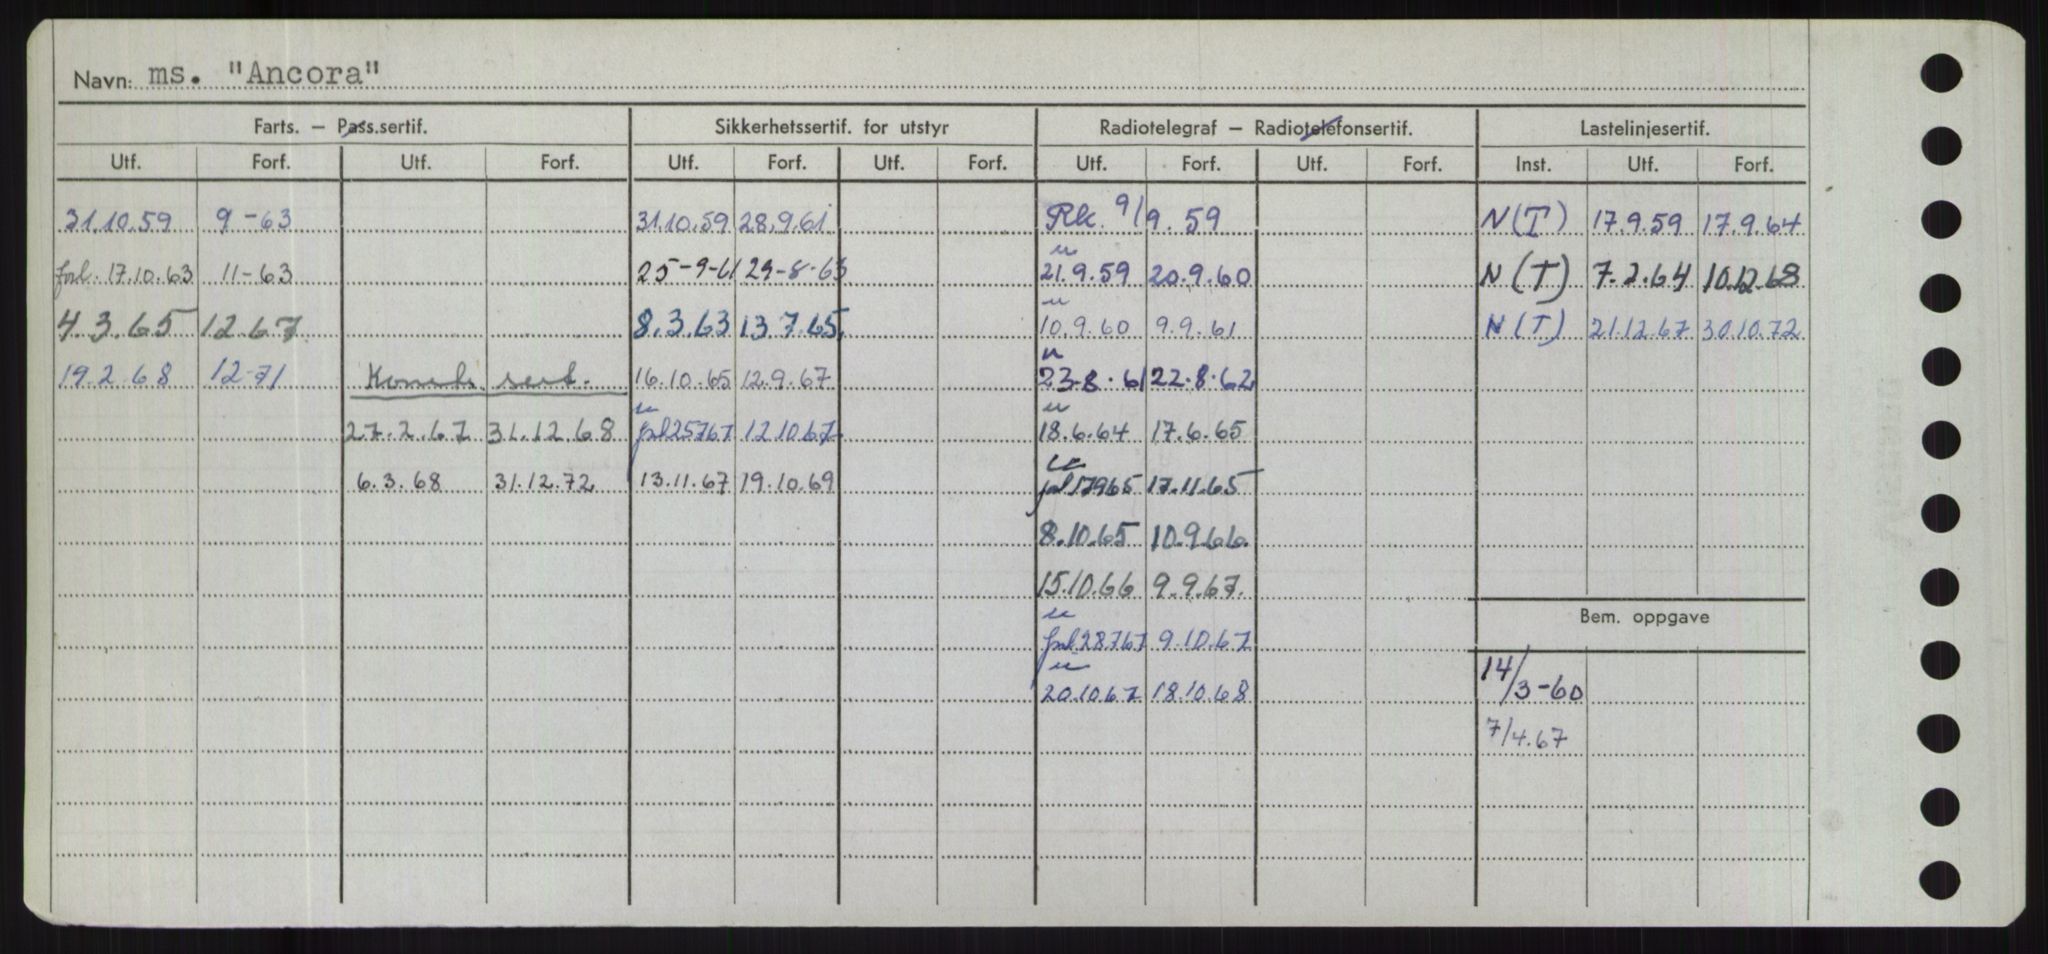 Navn: ms. "Ancora"
Farts. – Pass.sertif. Sikkerhetssertif. for utstyr Radiotelegraf – Radiotelefonsertif. Lastelinjesertif.
Utf. Forf. Utf. Forf. Utf. Forf. Utf. Forf. Utf. Forf. Utf. Forf. Inst. Utf. Forf.
31.10.59 9-63 31.10.59 28.9.61 Rk. 9/9.59 N(T) 17.9.59 17.9.64
forl. 17.10.63 11-63 25-9-61 29-8-63 21.9.59 20.9.60 N(T) 7.2.64 10.12.68
4.3.65 12.67 8.3.63 13.7.65. 10.9.60 9.9.61 N(T) 21.12.67 30.10.72
19.2.68 12-71 sert. 16.10.65 12.9.67 23.8.61 22.8.62
27.2.67 31.12.68 forl 25767 12.10.67 18.6.64 17.6.65
6.3.68 31.12.72 13.11.67 19.10.69 forl 17965 17.11.65
8.10.65 10.9.66.
15.10.66 9.9.67.
Bem. oppgave
forl 28767 9.10.67
20.10.67 18.10.68 14/3-60
7/4.67